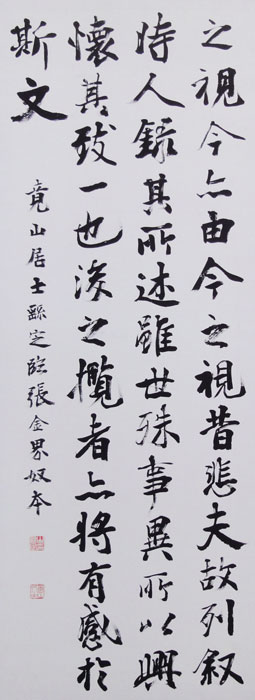 之視今亦由今之視昔悲夫故列叙
時人録其所述雖世殊事異所以興
懷其致一也後之攬者亦將有感於
斯文
竟山居士繇定臨張金界奴本